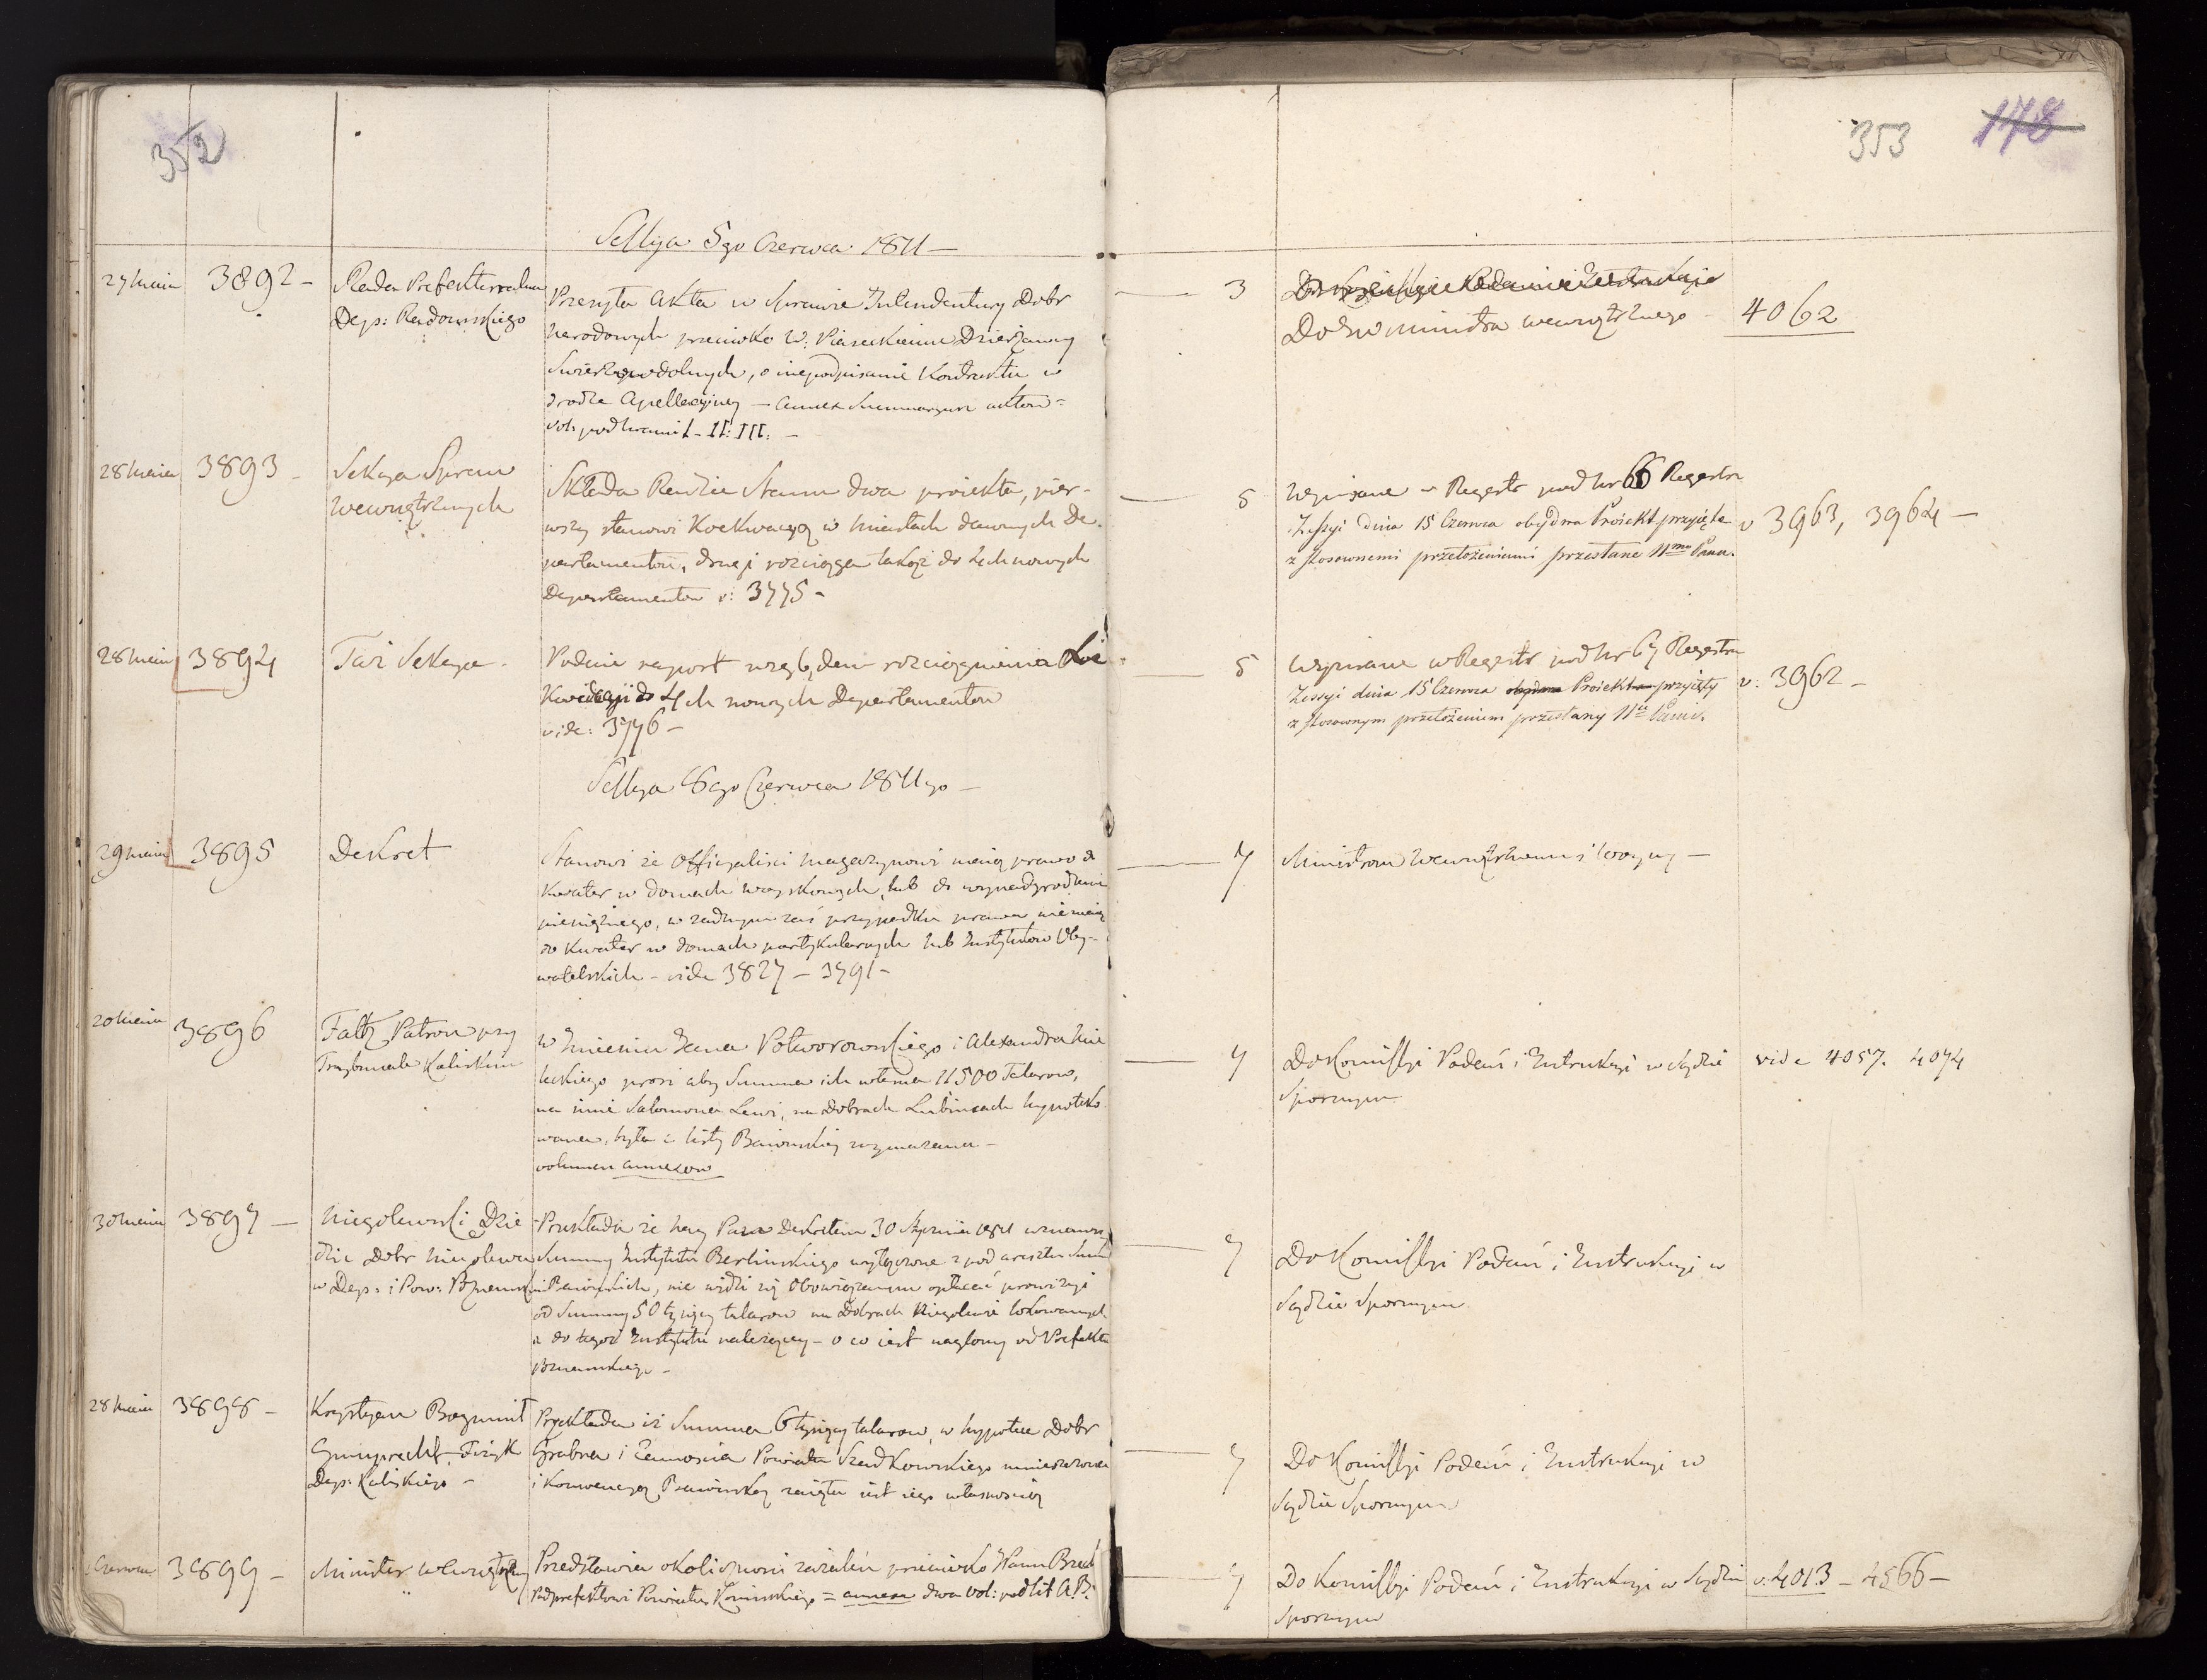 352
Sessya 5go Czerwca 1811 —
27 maia 3892 – Rada Prefekturalna
Dep: Radomskiego
Przesyła Akta w Sprawie Intendentury Dobr
Narodowych przeciwko W: Piaseckiemu Dzierżawcy
o niepodpisanie Kontraktu w
drodze Apellacyiney — annex Summaryusz aktow =
vol: pod Nrami I – II: III: —
28 maia 3893 – Sekcya Spraw
Wewnętrznych
Składa Radzie Stanu dwa proiekta, pier-
wszy stanowi Koekwacyą w Miastach dawnych De-
partamentow, drugi rozciąga takąż do 4ch nowych
Departamentow v: 3775 –
28 maia 3894 Taż Sekcya –
Podaie raport względem rozciągnienia Li
Kwidacyi do 4ch nowych Departamentow
vide: 3776 –
Sessya 8go Czerwca 1811go —
29 maia 3895 Dekret
Stanowi że Officyaliści magazynowi maią prawo do
Kwater w domach woyskowych, lub do wynadgrodzenia
pieniężnego, w żadnym zaś przypadku prawa nie maią
do Kwater w domach partykularnych lub Instytutow Oby-
watelskich – vide 3827 – 3791 –
20 maia 3896 Faltz Patron przy
Trybunale Kaliskim
w Imieniu Jana Potworowskiego i Alexandra Mie
lęckiego prosi aby Summa ich własna 11500 Talarow,
na imie Salomona Lewi, na Dobrach hypoteko
wana, była z listy Baionskiey wymazana –
volumen annexow
30 maia 3897 — Niegolewski Dzie
dzic Dobr Niegolewa
w Dep: i Pow: Poznanskim
Przekłada że Nay: Pan Dekretem 30 Stycznia 1811
Summy Instytutu Berlinskiego wyłączone z pod aresztu Summ
Baionskich, nie widzi się obowiązanym opłacać prowizyi
od Summy 50 tysięcy talarow na Dobrach Niegolewie lokowanych
a do tegoż Instytutu należącey – o co iest naglony od Prefekta
Poznanskiego –
28 maia 3898 – Krystyan Bogumił
Fizyk
Dep: Kaliskiego –
Przekłada iż Summa 6 tysięcy talarow, w hypotece Dobr
Grabna i Zamoscia Powiatu Szadkowskiego umieszczona
i Konwencyą Baionską zaięta iest iego własnością
Czerwca 3899 – Minister Wewnętrzny
Przedstawia okoliczności zażaleń przeciwko JPanu
Podprefektowi Powiatu Koninskiego = annexa dwa vol: pod lit A. B.
353 178
— 3
Do JW Ministra Wewnętrznego – 4062
— 5 Wpisane w Regestr pod Nr 66 Regestru
Zessyi dnia 15 Czerwca obydwa Proiekt przyięte
z stosownemi przełożeniami przesłane NNmu Panu.
v 3963, 3964 —
— 5 Wpisane w Regestr pod Nr 67 Regestru
Zessyi dnia 15 Czerwca obydwa Proiekta przyięty
z stosownym przełożeniem przesłany
v: 3962 –
— 7 Ministrom Wewnętrznemu i Woyny —
— 7 Do Kommissyi Podań i Instrukcyi w Sądzie
Spornym
vide 4057. 4074
— 7 Do Kommissyi Podań i Instrukcyi w
Sądzie Spornym
— 7 Do Kommissyi Podań i Instrukcyi w
Sądzie Spornym
— 7 Do Kommissyi Podań i Instrukcyi w Sądzie
Spornym
v: 4013 – 4566 –